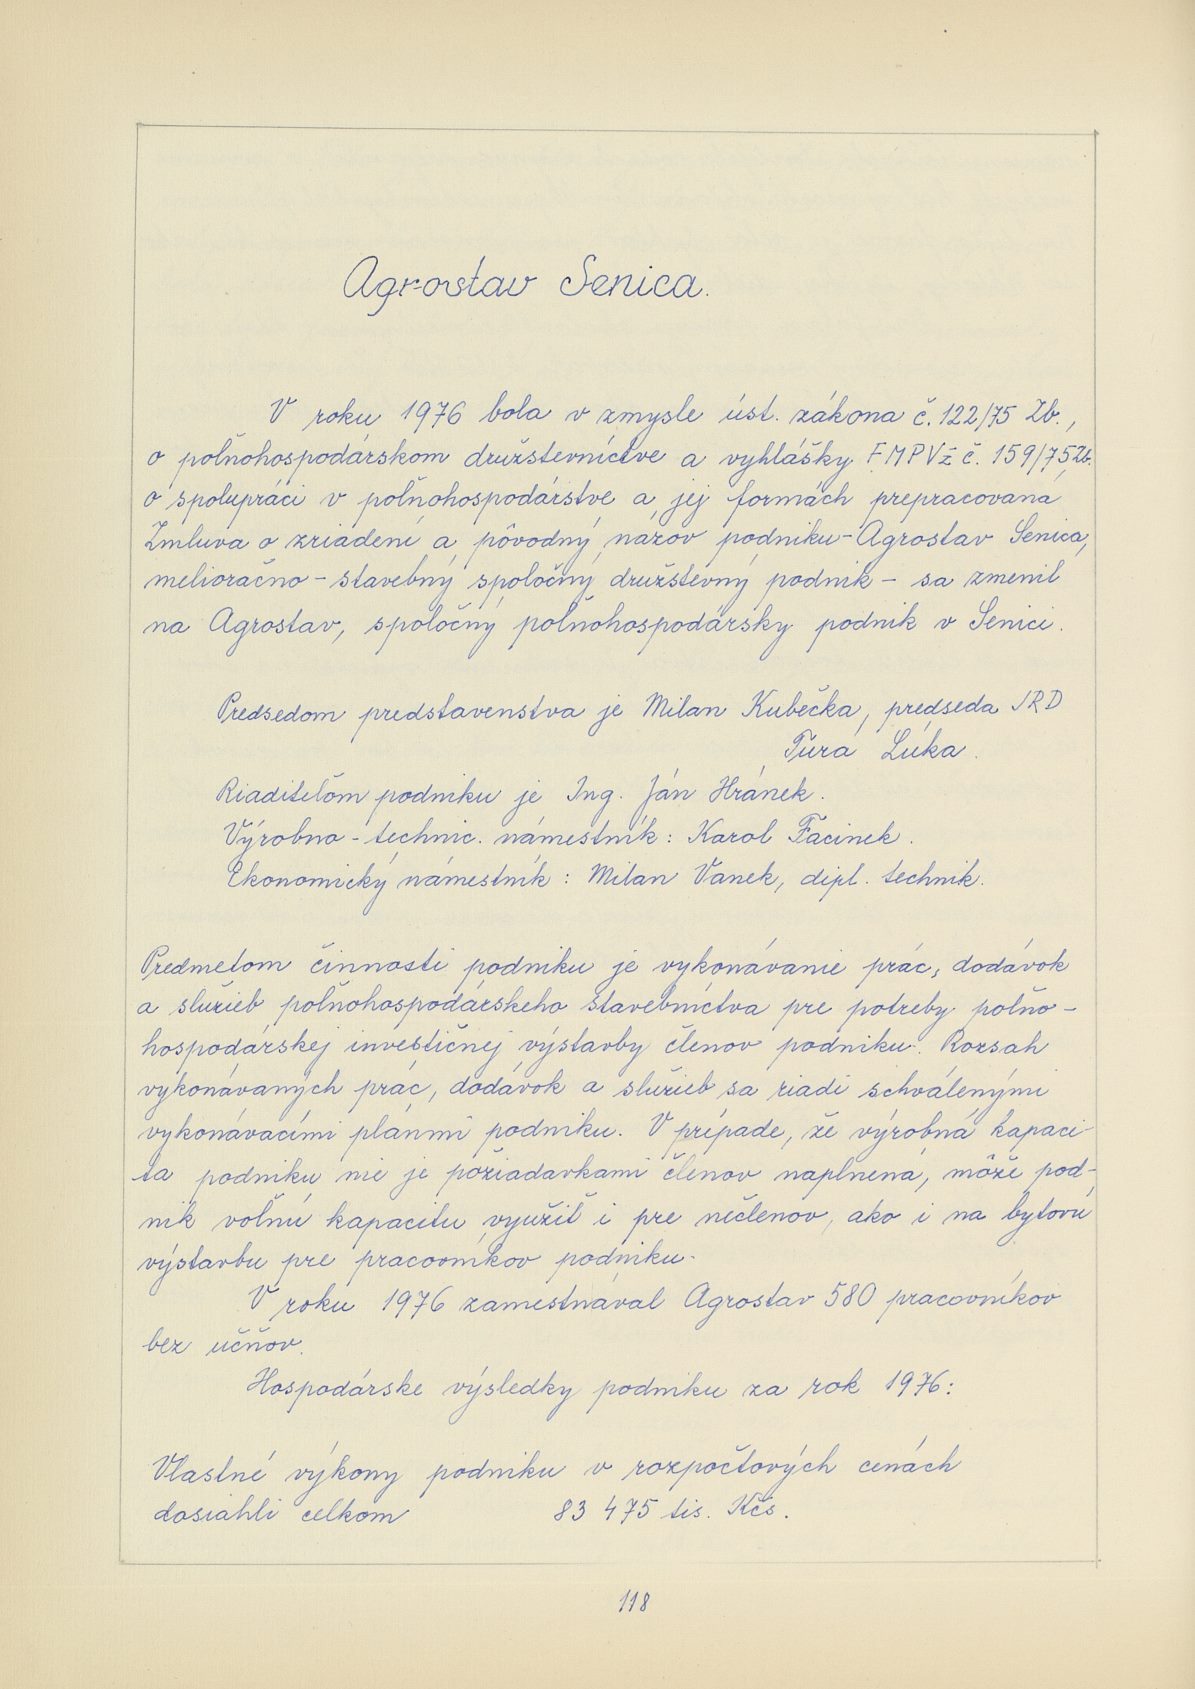 Agrostav Senica.
V roku 1976 bola v zmysle úst. zákona č. 122/75 Zb.,
o poľnohospodárskom družstevníctve a vyhlášky FMPVž č. 159/75 Zb.
o spolupráci v poľnohospodárstve a jej formách prepracovaná
Zmluva o zriadení a pôvodný názov podniku - Agrostav Senica,
melioračno - stavebný spoločný družstevný podnik - sa zmenil
na Agrostav, spoločný poľnohospodársky podnik v Senici.
Predsedom predstavenstva je Milan Kubečka, predseda JRD
Turá Lúka.
Riaditeľom podniku je Ing. Ján Hránek.
Výrobno - technic. námestník: Karol Facinek.
Ekonomický námestník: Milan Vanek, dipl. technik.
Predmetom činnosti podniku je vykonávanie prác, dodávok
a služieb poľnohospodárskeho stavebníctva pre potreby poľno-
hospodárskej investičnej výstavby členov podniku. Rozsah
vykonávaných prác, dodávok a služieb sa riadi schválenými
vykonávacími plánmi podniku. V prípade, že výrobná kapaci-
ta podniku nie je požiadavkami členov naplnená, môže pod-
nik voľnú kapacitu využiť i pre nečlenov, ako i na bytovú
výstavbu pre pracovníkov podniku.
V roku 1976 zamestnával Agrostav 580 pracovníkov
bez učňov.
Hospodárske výsledky podniku za rok 1976:
Vlastné výkony podniku v rozpočtových cenách
dosiahli celkom 83 475 tis. Kčs.
118